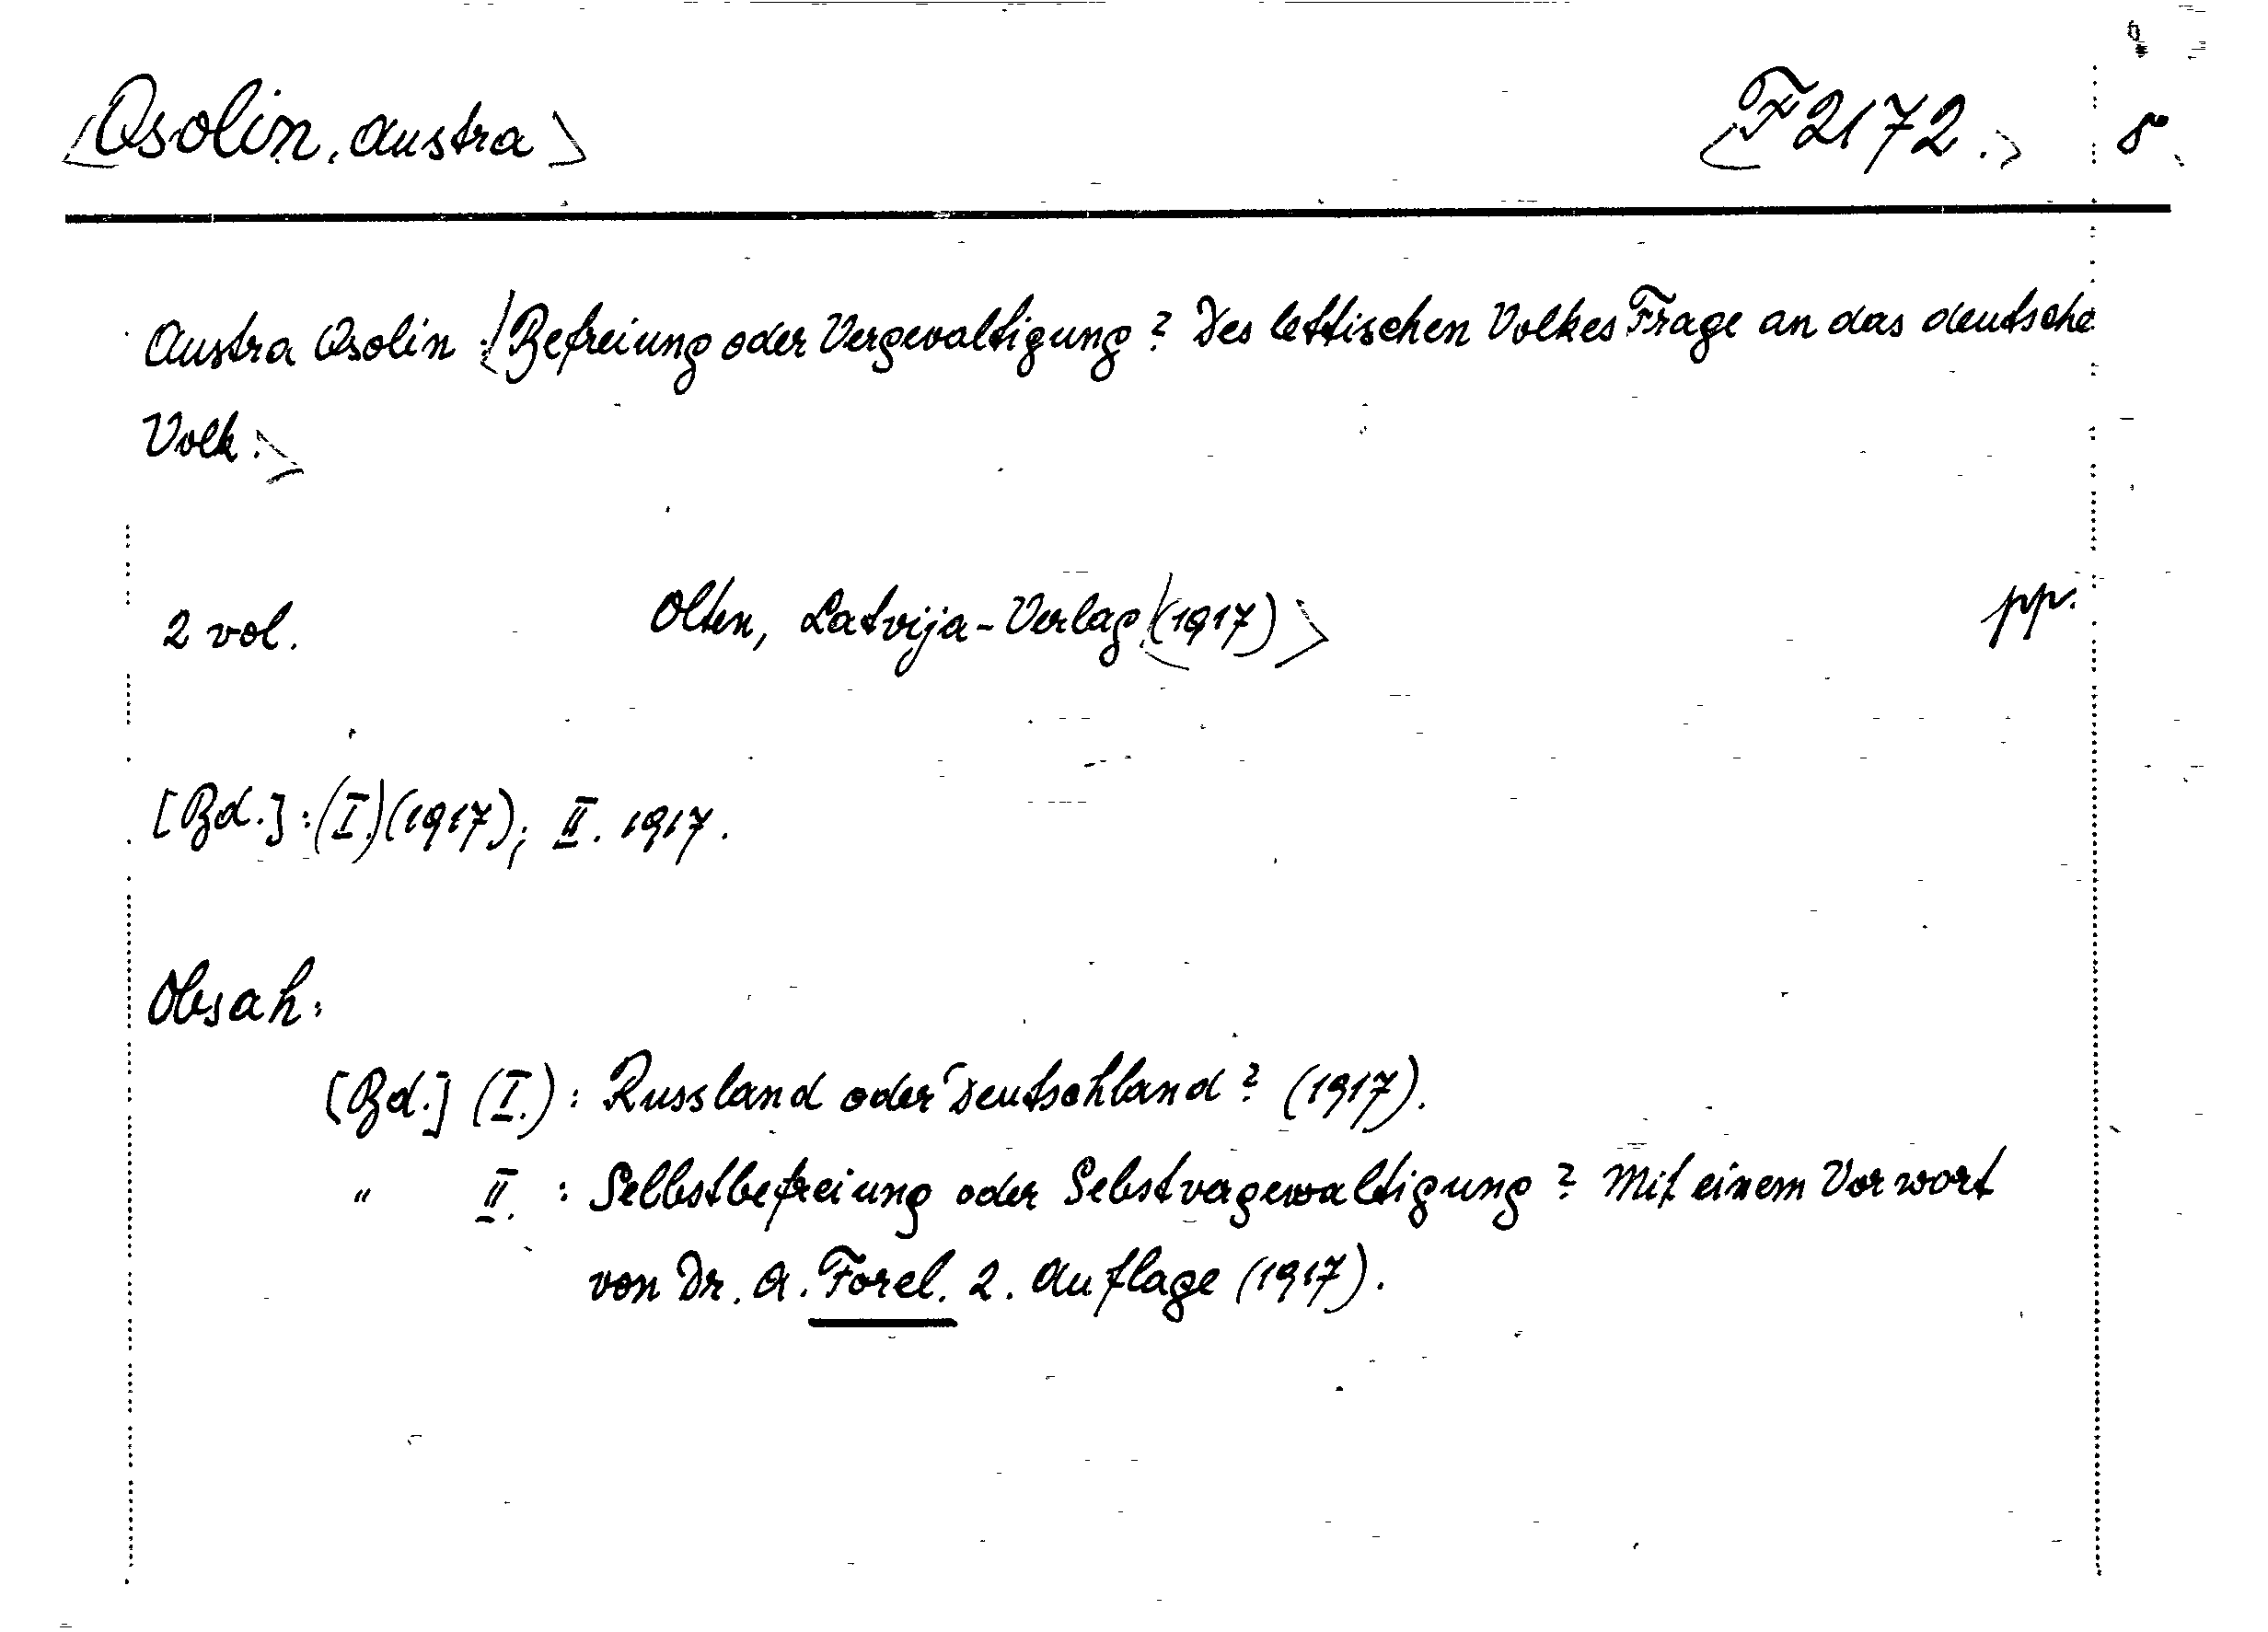 <Osolin, Austra> <F 2172.> 8°
Austra Osolin: <Befreiung oder Vergewaltigung? Des lettischen Volkes Frage an das deutsche
Volk.>
2 vol. Olten, Latvija-Verlag <(1917)> pp.
[Bd.]: (I.) (1917); II. 1917.
Obsah:
[Bd.] (I.): Russland oder Deutschland? (1917).
" II. : Selbstbefreiung oder Sebstvagewaltigung? Mit einem Vorwort
von Dr. A. Forel. 2. Auflage (1917).